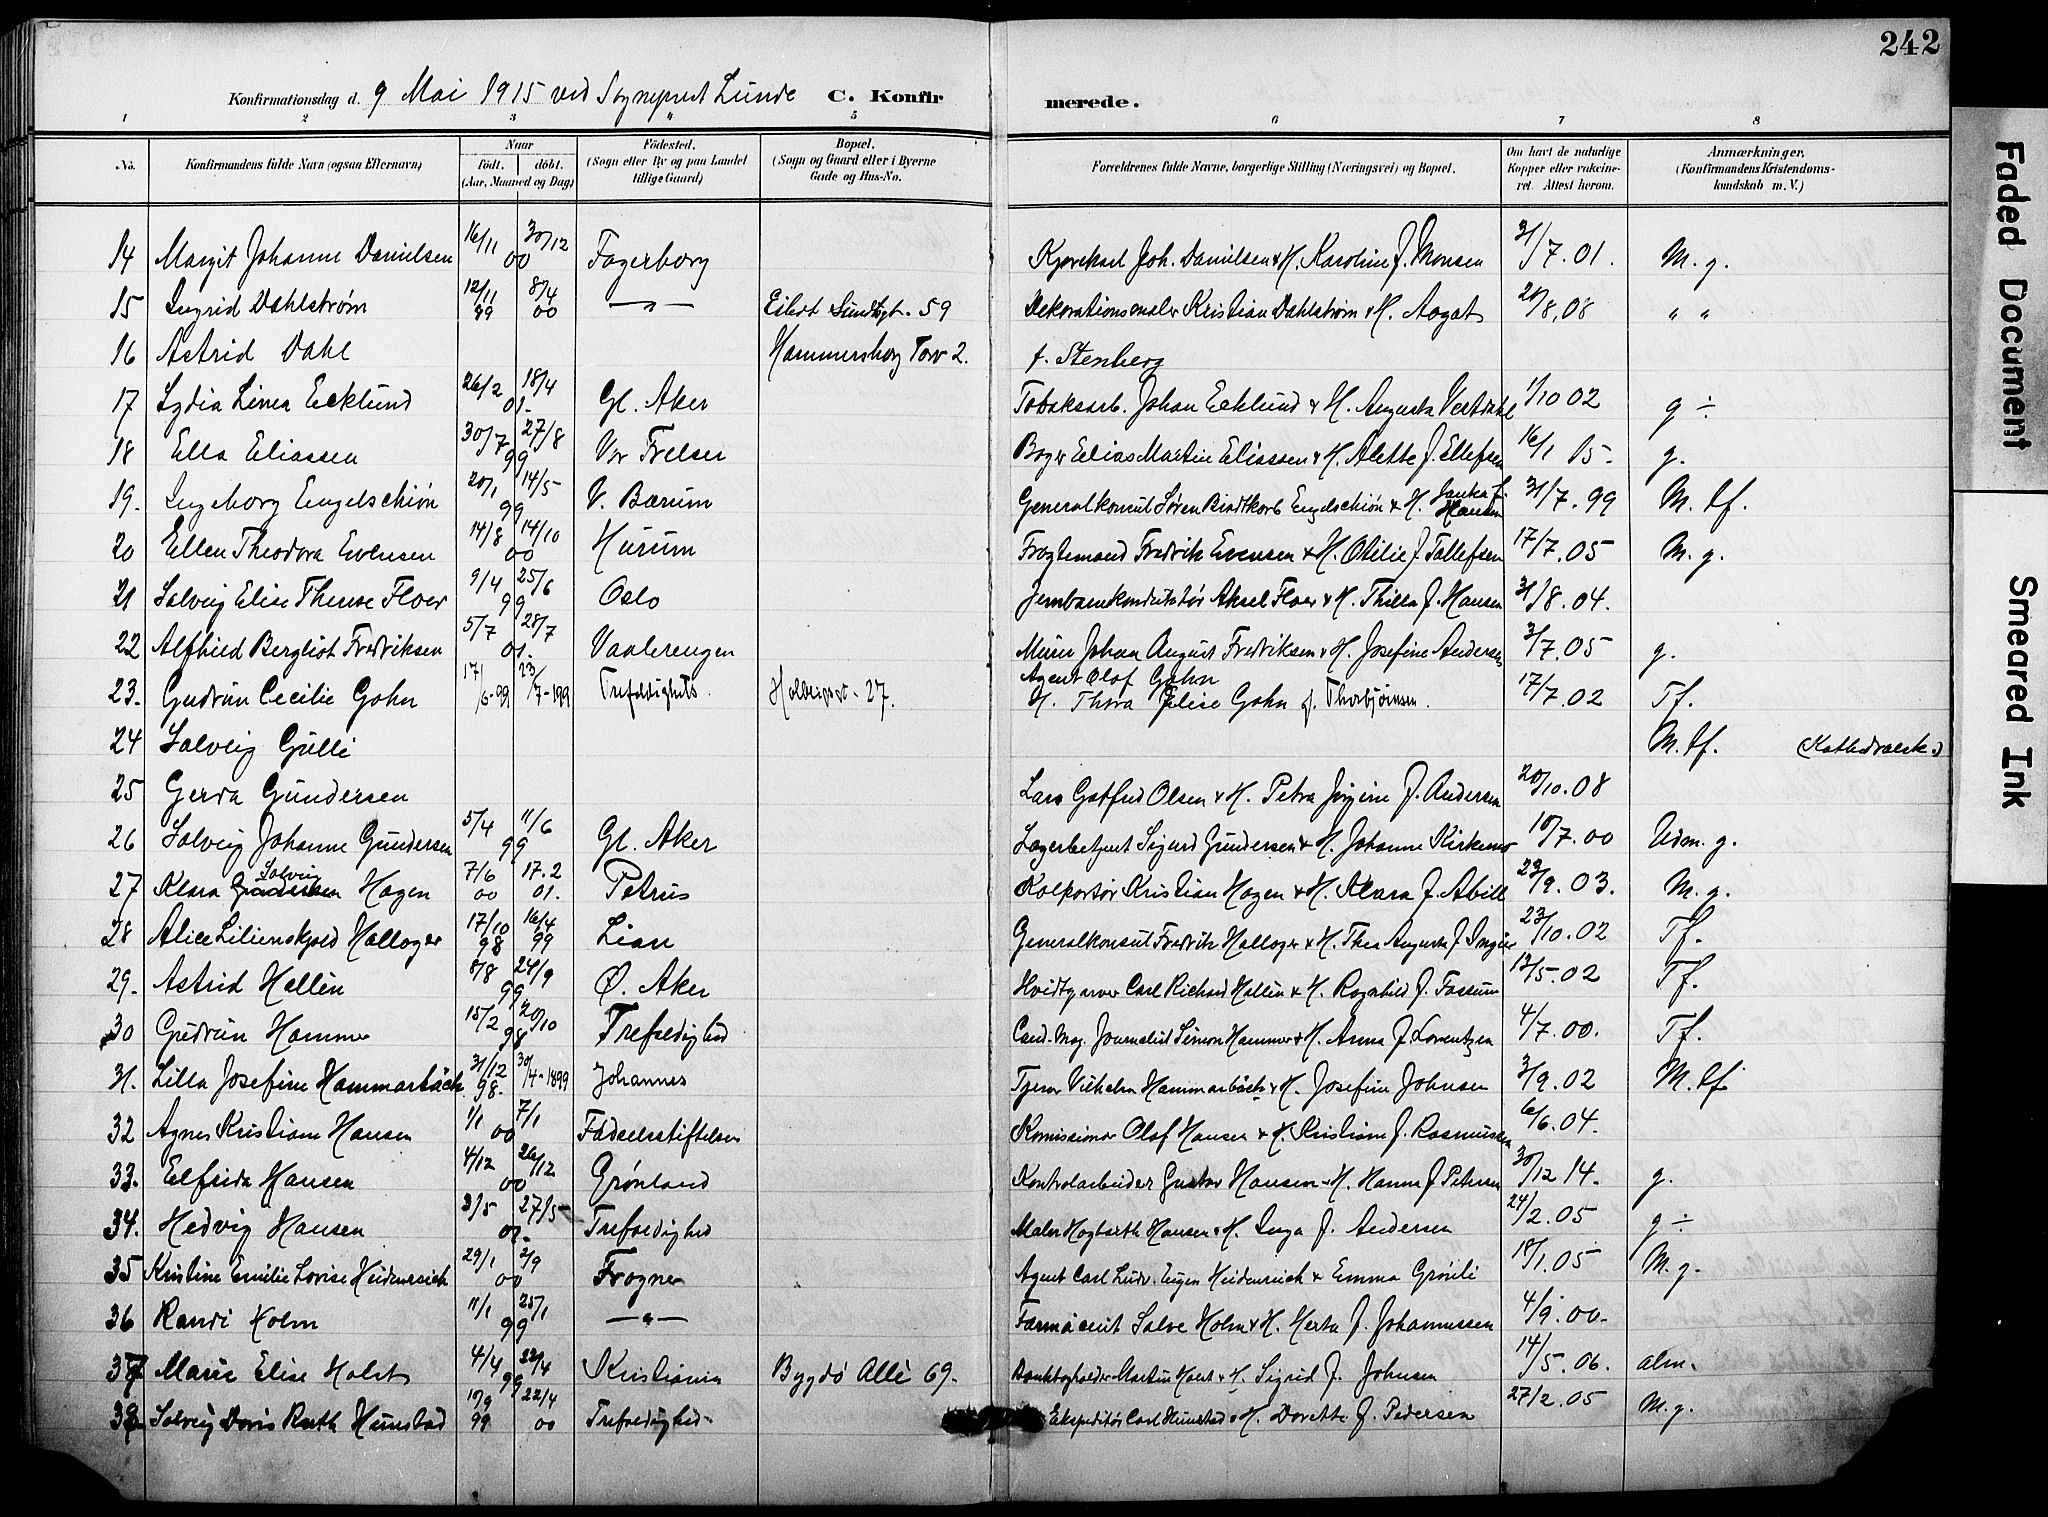 242
Konfirmationsdag d. 9 Mai 1915 ved Sogneprest Lunde C. Konfir merede.
1 2 3 " 5 6 7 8
No. Konfirmandens fulde Navn (ogsaa Efternavn) Naar Födt. döbt. (Aar, Maaned og Dag) Födested. (Sogn eller By og paa Landet tillige Gaard) Bopæl. (Sogn og Gaard eller i Byerne Gade og Hus-No. Forældrenes fulde Navne, borgerlige Stilling (Næringsvei) og Bopæl. Om havt de naturlige Kopper eller vakcineret. Attest herom. Anmærkninger. (Konfirmandens Kristendomskundskab m. V.)
14 Margit Johanne Danielsen 16/11 30/12 00 Fagerborg Kjørekarl Joh. Danielsen & H. Karoline f. Monsen 31/7. 01. M. g.
15 Ingrid Dahlstrøm 12/11 99 8/4 00 — " — Eilert Sundtsgt. 59 Dekorationsmaler Kristian Dahlstrøm & H. Aagot 20/8, 08 " "
16 Astrid Dahl Hammersborg Torv 2. f. Stenberg
17 Lydia Linea Ecklund 26/2 18/4 01. Gl. Aker Tobaksarb. Johan Ecklund & H. Augusta Vestdahl 1/10 02 g ÷
18 Ella Eliassen 30/7 27/8 99 Vor Frelser Bager Elias Martin Eliassen & H. Alette f. Ellefsen 16/1 05- g.
19. Ingeborg Engelschiøn 20/1 14/5 99 V. Bærum Generalkonsul Søren Engelschiøn & H. f. Hansen 31/7. 99 M. tf.
20 Ellen Theodora Evensen 14/8 14/10 00 Hurum Fragtemand Fredrik Evensen & H. Otilie f Tollefsen 17/7. 05 M. g.
21 Solveig Elise Therese Floer 9/4 25/6 99 Oslo Jernbanekonduktør Aksel Floer & H. Thilla f. Hansen 31/8. 04.
22 Alfhild Bergliot Fredriksen 5/7 28/7 01. Vaalerengen Murer Johan August Fredriksen & H. Josefine Andersen 3/7. 05 g.
Agent Olof Gohn
23. Gudrun Cecilie Gohn 17/6-99 23/7-1899 Trefoldighets. Holbergsgt. 27. H. Thora Elise Gohn f. Thorbjørnsen. 17/7. 02 Tf.
24 Solveig Gulli M. tf. (Kathedralsk.)
25 Gerda Gundersen Lars Gotfred Olsen & H. Petra Jørgine f. Andersen 20/10. 08
26 Solveig Johanne Gundersen 5/4 11/6 99 Gl. Aker Lagerbetjent Sigurd Gundersen & H. Johanne Kirkemo 10/7. 00 Udm. g.
Solveig
27 Klara Hagen 7/6 00 17.2 01. Petrus Kolportør Kristian Hagen & H. Klara f. Abill 23/9. 03. M. g.
28 Alice Lilienskjold Hallager 17/10 98 16/4 99 Lian Generalkonsul Fredrik Hallager & H. Thea Augusta f Ingier 23/10. 02 Tf.
29. Astrid Hallin 8/8 24/9 99 Ø. Aker Hvidtgarver Carl Richard Hallin & H. Ragnhild f. Fossum 12/5. 02 Tf.
30 Gudrun Hammer 15/2 20/10 98 Trefoldighed Cand. Mag. Journalist Simon Hammer & H. Anna f. Lorentzen 4/7. 00. Tf.
31. Lilla Josefine Hammarbäck 31/12 98. 30/4-1899 Johannes Tjener Vilhelm Hammarbäck & H. Josefine Johnsen 3/9. 02 M. tf
32 Agnes Kristiane Hansen 1/1 7/1 00 Fødselsstiftelsen Komissionær Olaf Hansen & H. Kristiane f. Rasmussen 6/6. 04.
33. Elfrida Hansen 4/12 26/12 00 Grønland Kontrolarbeider Gustav Hansen - H. Hanna f Petersen 30/12 14. g.
34. Hedvig Hansen 3/5 27/5 01. Trefoldighed Maler Hagbarth Hansen & H. Inga f. Andersen 24/2. 05 g ÷
35 Kristine Emilie Lovise Heidenreich 29/1 2/9 00 Frogner Agent Carl Ludv. Eugen Heidenreich & Emma Grønli 18/1. 05 M. g.
36 Randi Holm 11/1 25/1 99 — " — Farmaceut Salve Holm & H. Herta f. Johannessen 4/9. 00-
37 Marie Elise Holst 4/4 23/4 99 Kristiania Bygdø Allè 69. Bankbogholder Martin Holst & H. Sigrid f. Johnsen 14/5. 06. alm.
38 Solveig Doris Ruth Hunstad 10/9 99 22/4 00 Trefoldighed Ekspeditør Carl Hunstad & H. Dorette f. Pedersen 27/2. 05 M. g.
Faded Document
Smeared Ink